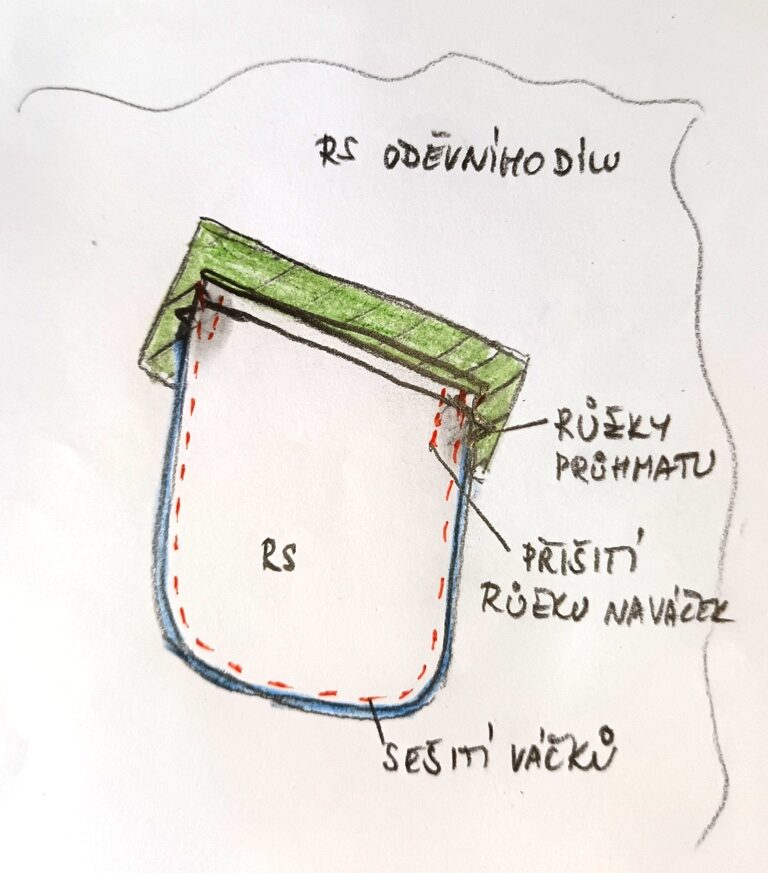 RS ODĚVNÍHO DÍLU
RŮŽKY
PRŮHMATU
RS
PŘIŠITÍ
RŮŽKU NA VÁČEK
SEŠITÍ VÁČKŮ